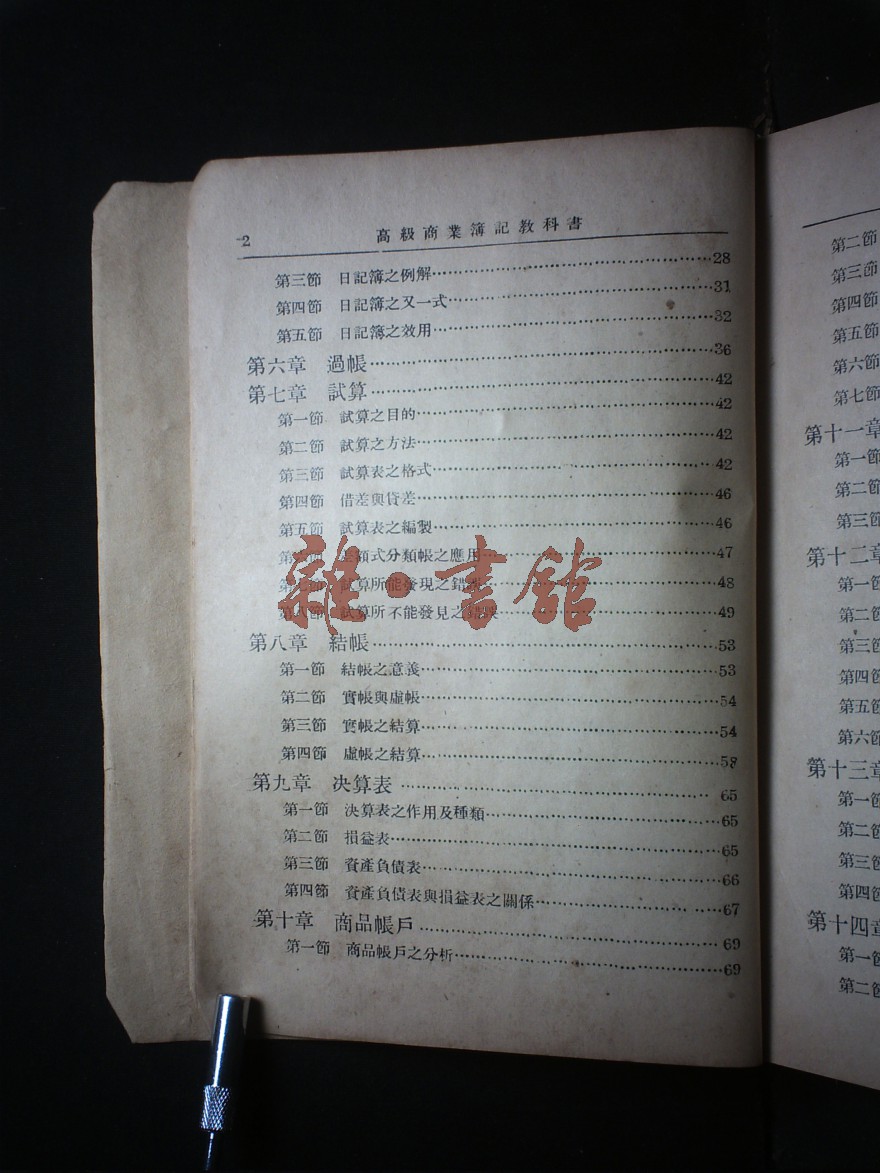 2 高級商業簿記教科書
第三節 日記簿之例解……28
第四節 日記簿之又一式……31
第五節 日記簿之效用……32
第六章 過帳……36
第七章 試算……42
第一節 試算之目的……42
第二節 試算之方法……42
第三節 試算表之格式……42
第四節 借差與貸差……46
第五節 試算表之編製……46
第六節 差額式分類帳之應用……47
第七節 試算所能發現之錯誤……48
第八節 試算所不能發見之錯誤……49
雜·書館
第八章 結帳……53
第一節 結帳之意義……53
第二節 實帳與虛帳……54
第三節 實帳之結算……54
第四節 虛帳之結算……58
第九章 決算表……65
第一節 決算表之作用及種類……65
第二節 損益表……65
第三節 資產負債表……66
第四節 資產負債表與損益表之關係……67
第十章 商品帳戶……69
第一節 商品帳戶之分析……69
第二節
第三節
第四節
第五節
第六節
第七節
第十一章
第一節
第二節
第三節
第十二章
第一節
第二節
第三節
第四節
第五節
第六節
第十三章
第一節
第二節
第三節
第四節
第十四章
第一節
第二節